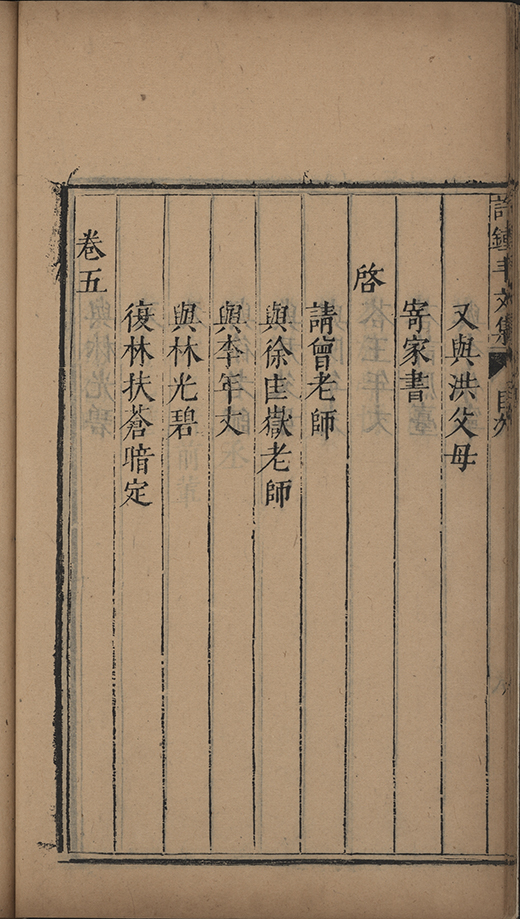 許鍾斗文集 目九
又與洪父母
寄家書
啓
請曾老師
與徐匡嶽老師
與李年丈
與林光碧
復林扶蒼暗定
卷五